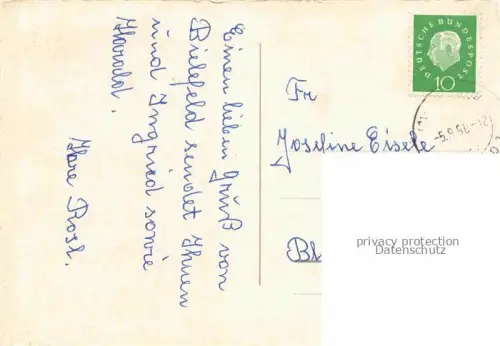 Einen lieben Gruß von
Bielefeld sendet Ihnen
und Ingried sowie
Harald.
Ihre Rosl.
DEUTSCHE BUNDESPOST
10
-5.9.60-12
Fr
Joseline Eisele
Bl
privacy protection
Datenschutz